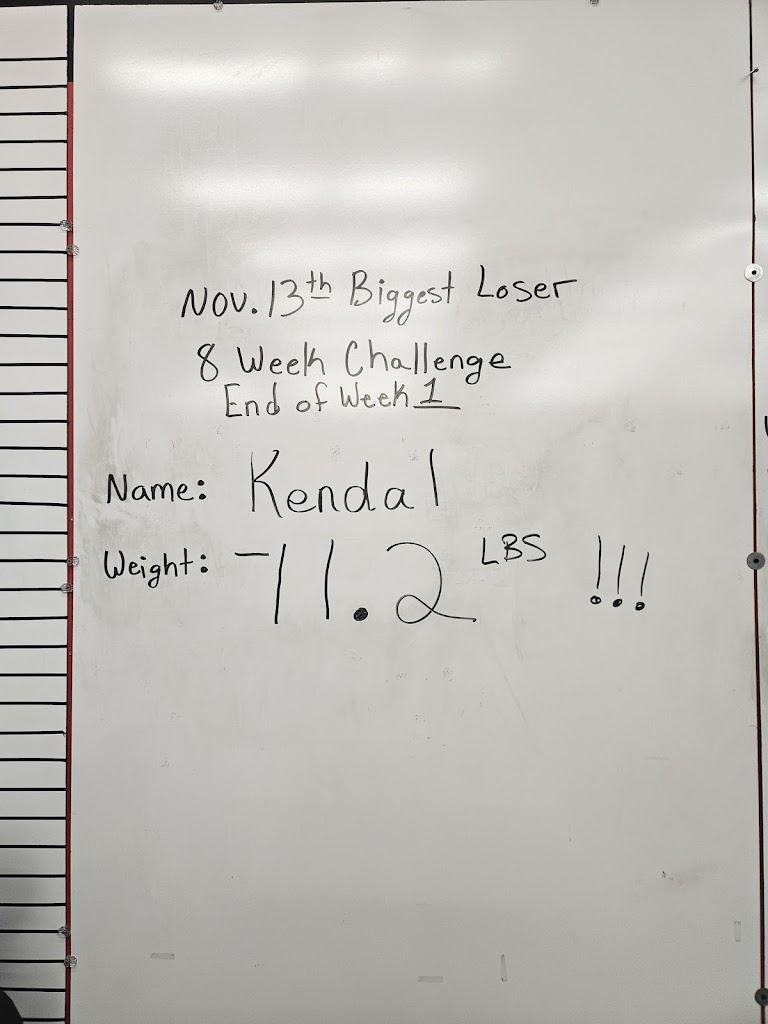 Nov. 13th Biggest Loser
8 Week Challenge
End of Week 1
Name: Kendal
Weight: -11.2 LBS !!!